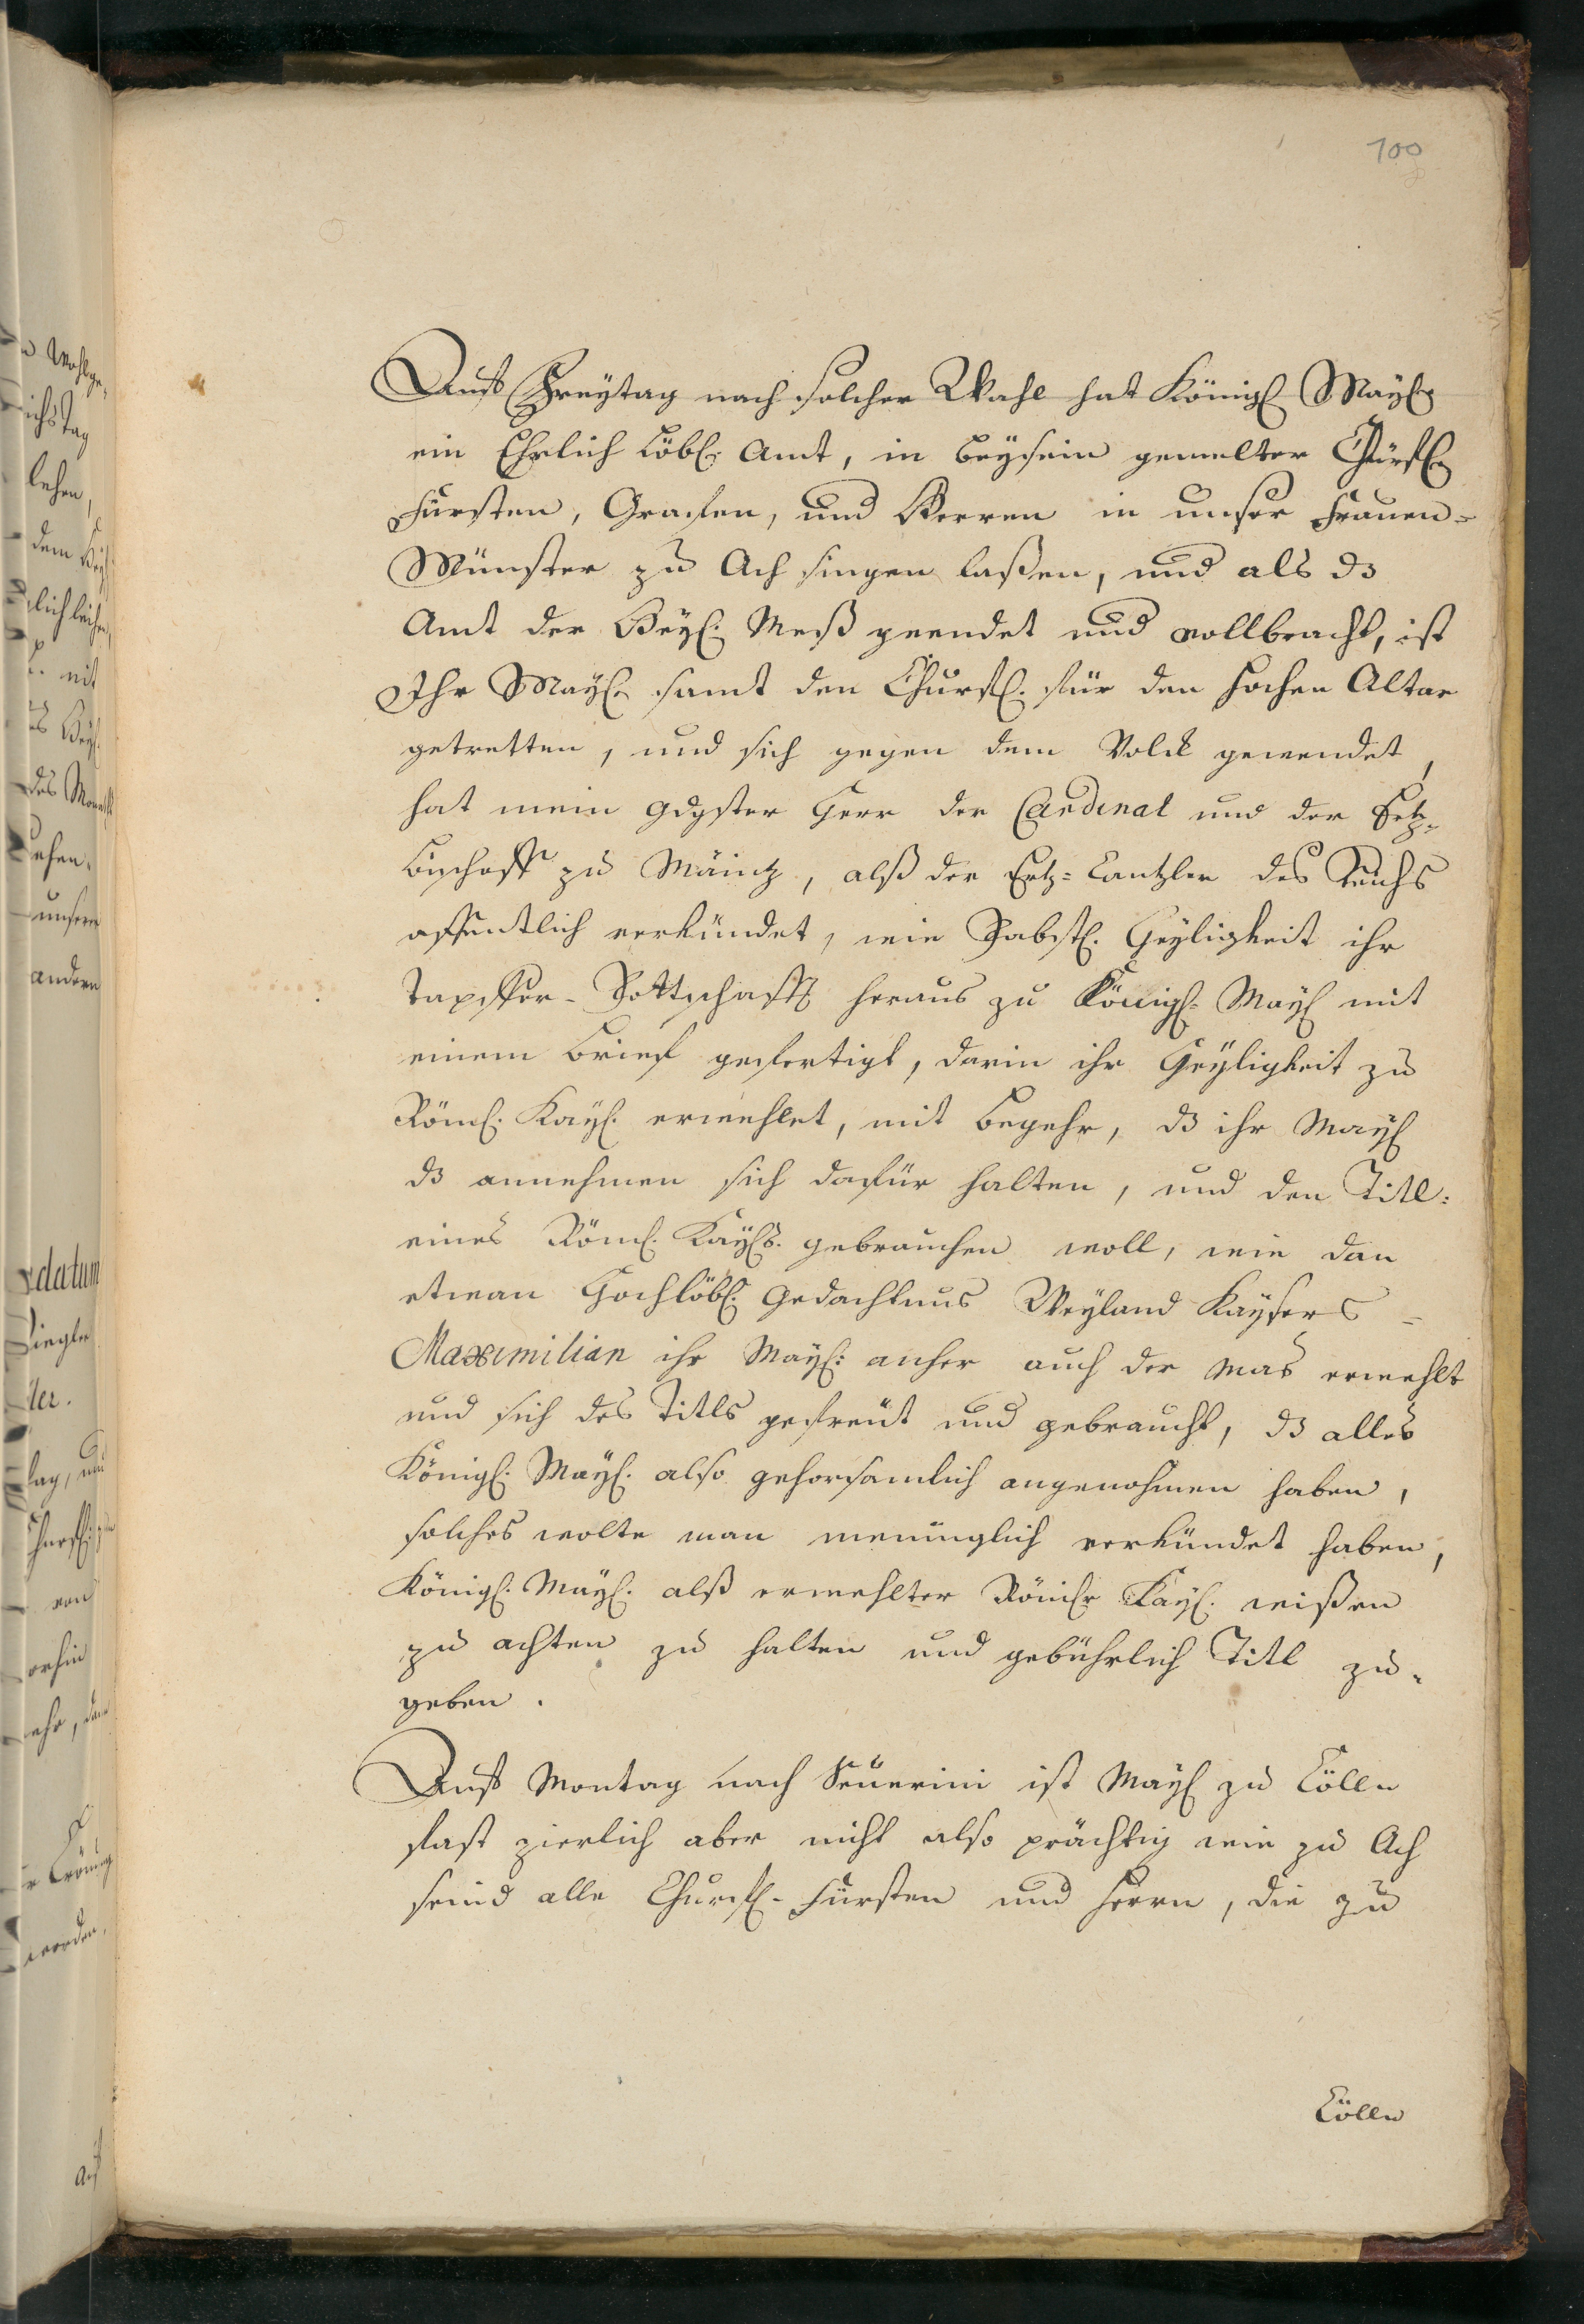 100
Auff Freytag nach solcher Wahl hat Königl. Mayl.
ein Ehrlich Löbl. Amt, in beysein gemelter Churfl.
Fürsten, Grafen, und Herren in unser Frauen-
Münster zu Ach singen laßen, und als dz
Amt der Heyl. Meß geendet und vollbracht, ist
Ihr Mayl. samt den Churfl. für den hohen Altar
getretten, und sich gegen dem Volck gewendet,
hat mein gdgster Herr der Cardinal und der Ertz-
bischoff zu Mäintz, alß der Ertz-Cantzler des Reichs
offentlich verkündet, wie Pabstl. Heyligkeit ihr
Tapffer-Bottschafft heraus zu Königl. Mayl. mit
einem brief gefertigt, darin ihr Heyligkeit zu
Röml. Kayl. erwehlet, mit begehr, dz ihr Mayl.
dz annehmen sich dafür halten, und den Titl:
eines Röml. Kayls. gebrauchen woll, wie dan
etwan Hochlöbl. Gedachtnus Weyland Kaysers
Maximilian ihr Mayl: anher auch der mas erwehlt
und sich des Titls gefreüt und gebraucht, dz alles
Königl. Mayl. also gehorsamlich angenohmen haben,
solches wolte man meniglich verkündet haben,
Königl. Mayl. alß erwehlter Römisr Kayl. wißen
zu achten zu halten und gebührlich Titl zu-
geben.
Auff Montag nach Seuerini ist Mayl. zu Cölln
fast zierlich aber nicht also prächtig wie zu Ach
seind alle Churfl.-Fürsten und Herrn, die zu
Cölln